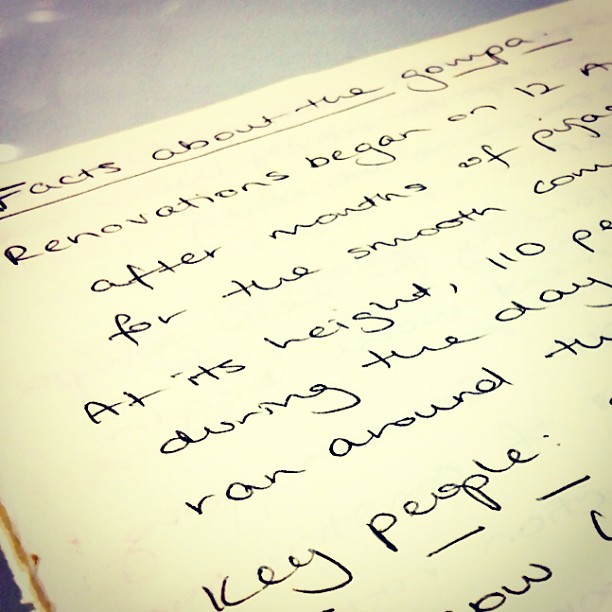 Facts about the gompa.
Renovations began on 12 A
after months of puja
for the smooth com
At its height, 110 pe
during the day
ran around th
Key people:
ow